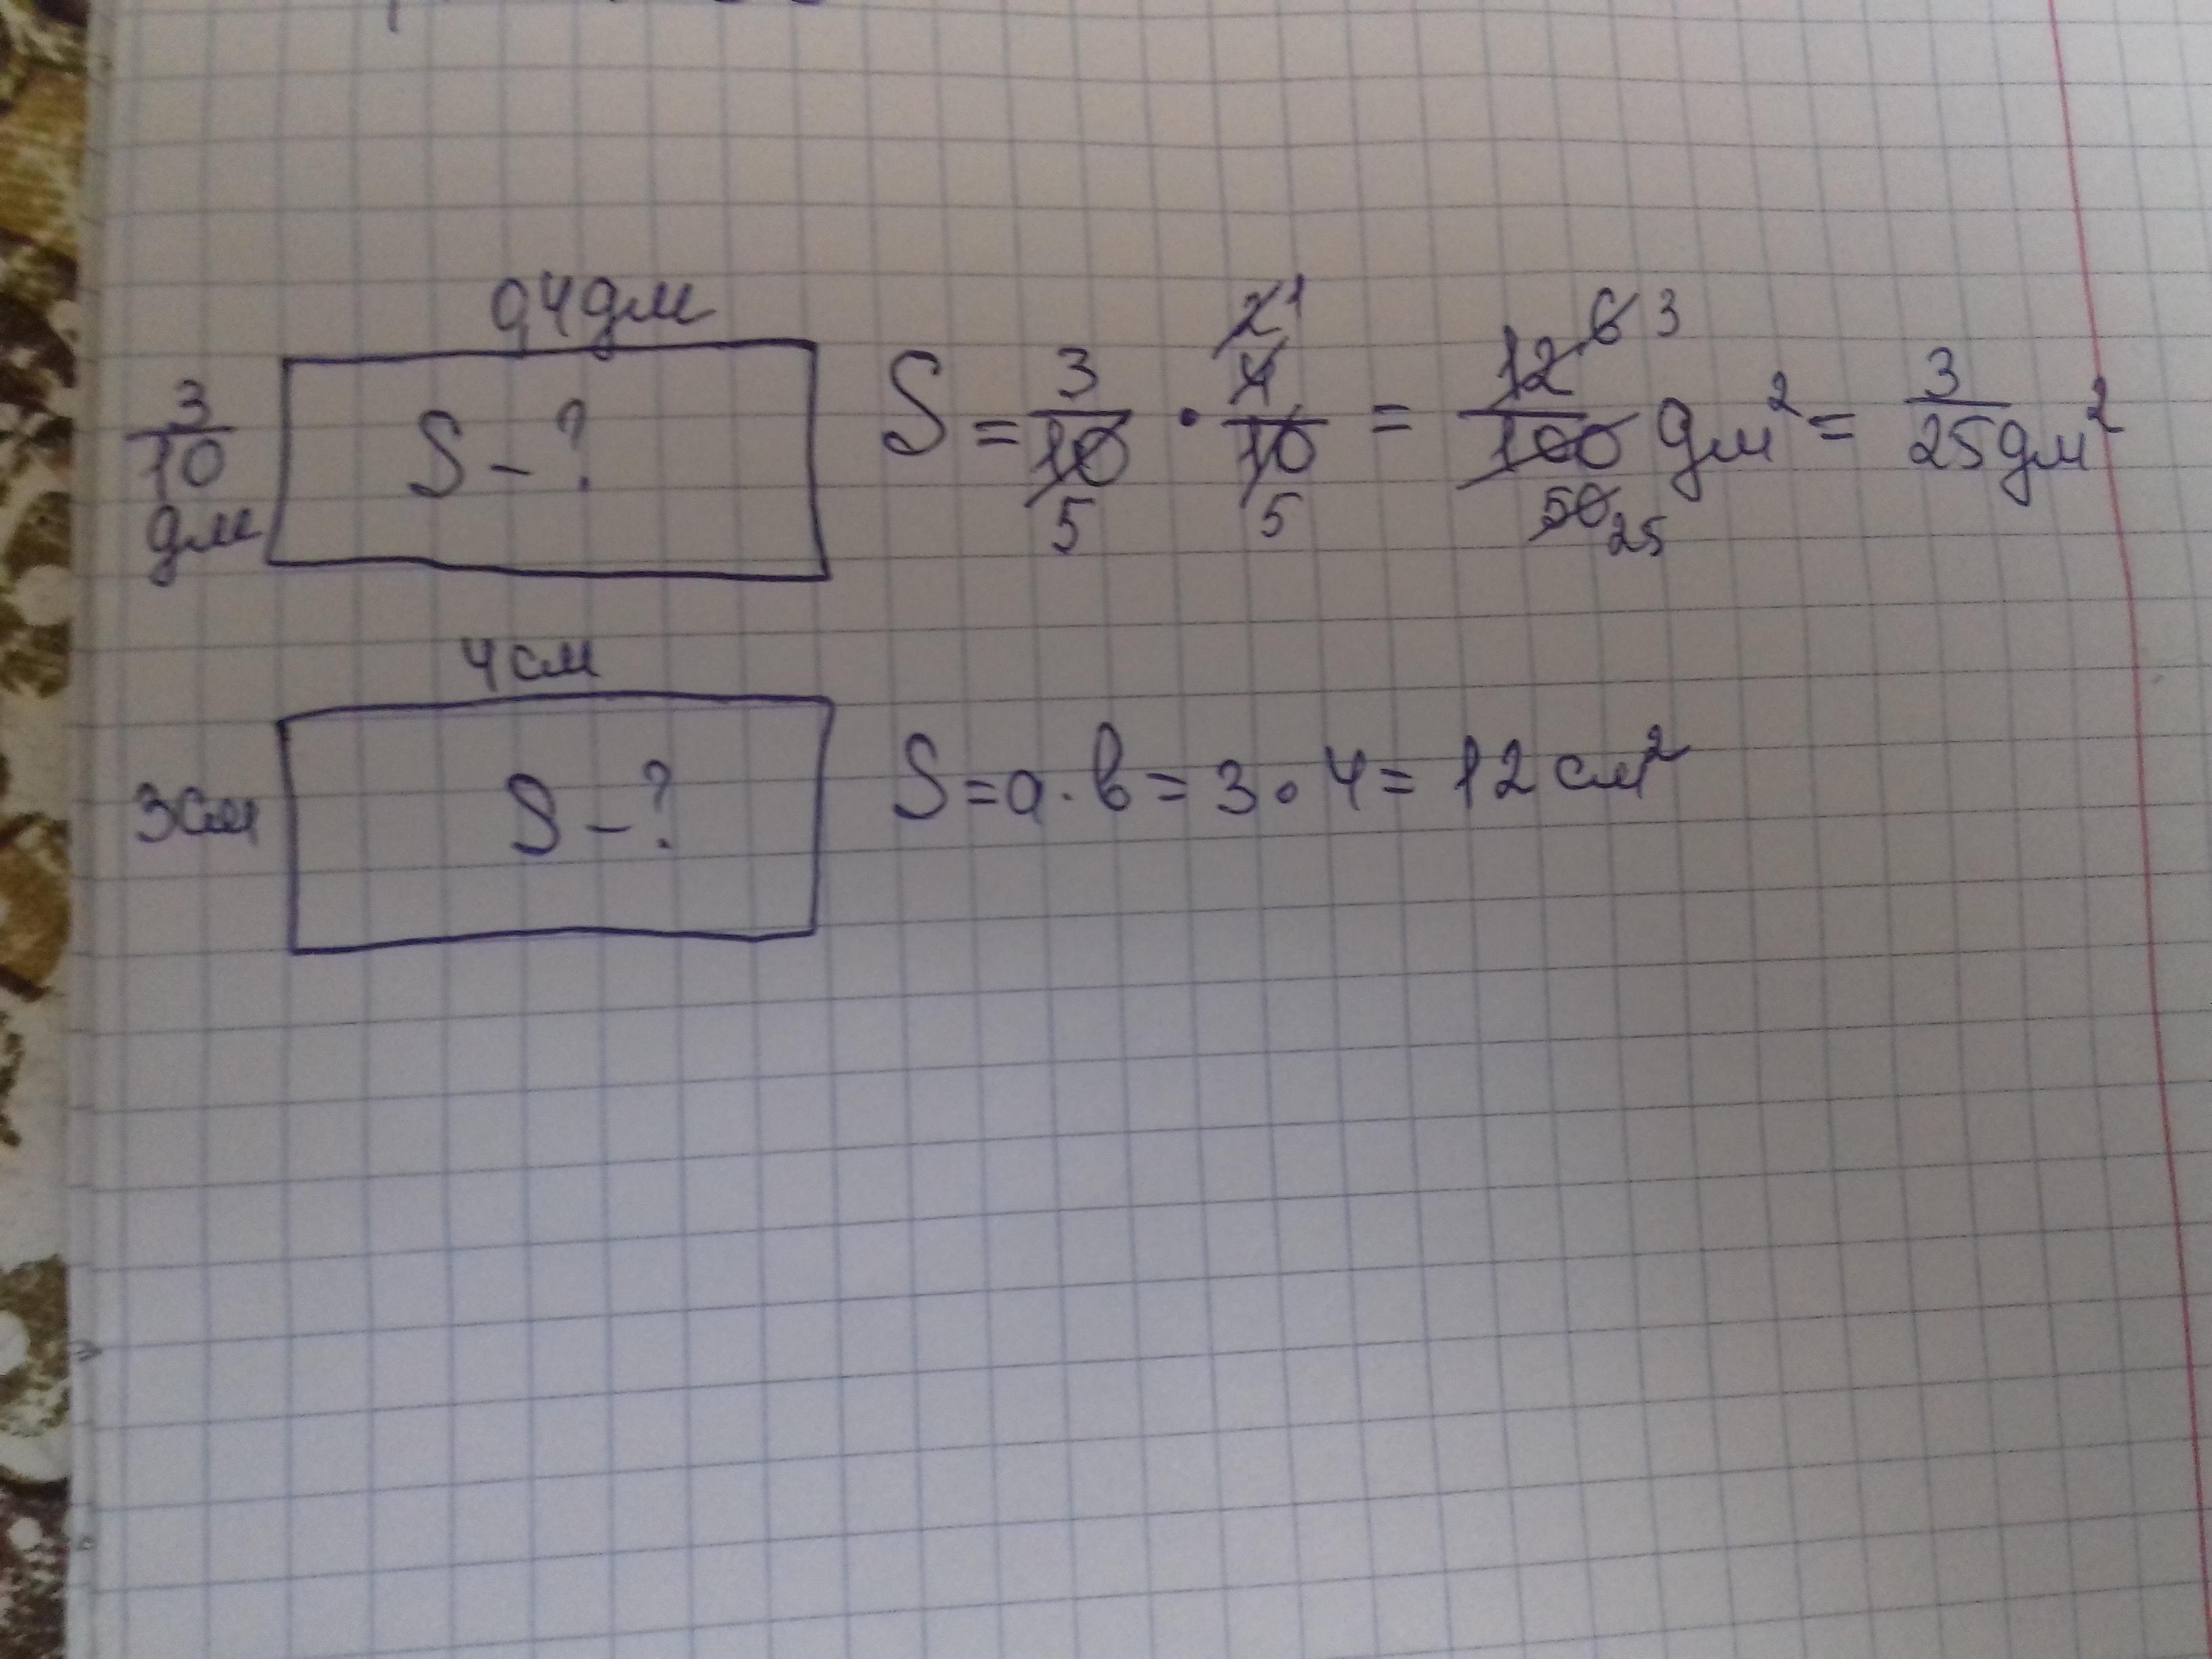 0,4 дм
3/10 дм
S - ?
S = 3/10 5 · 4 2 1/10 5 = 12 6 3/100 50 25 дм² = 3/25 дм²
4 см
3 см
S - ?
S = a · b = 3 · 4 = 12 см²